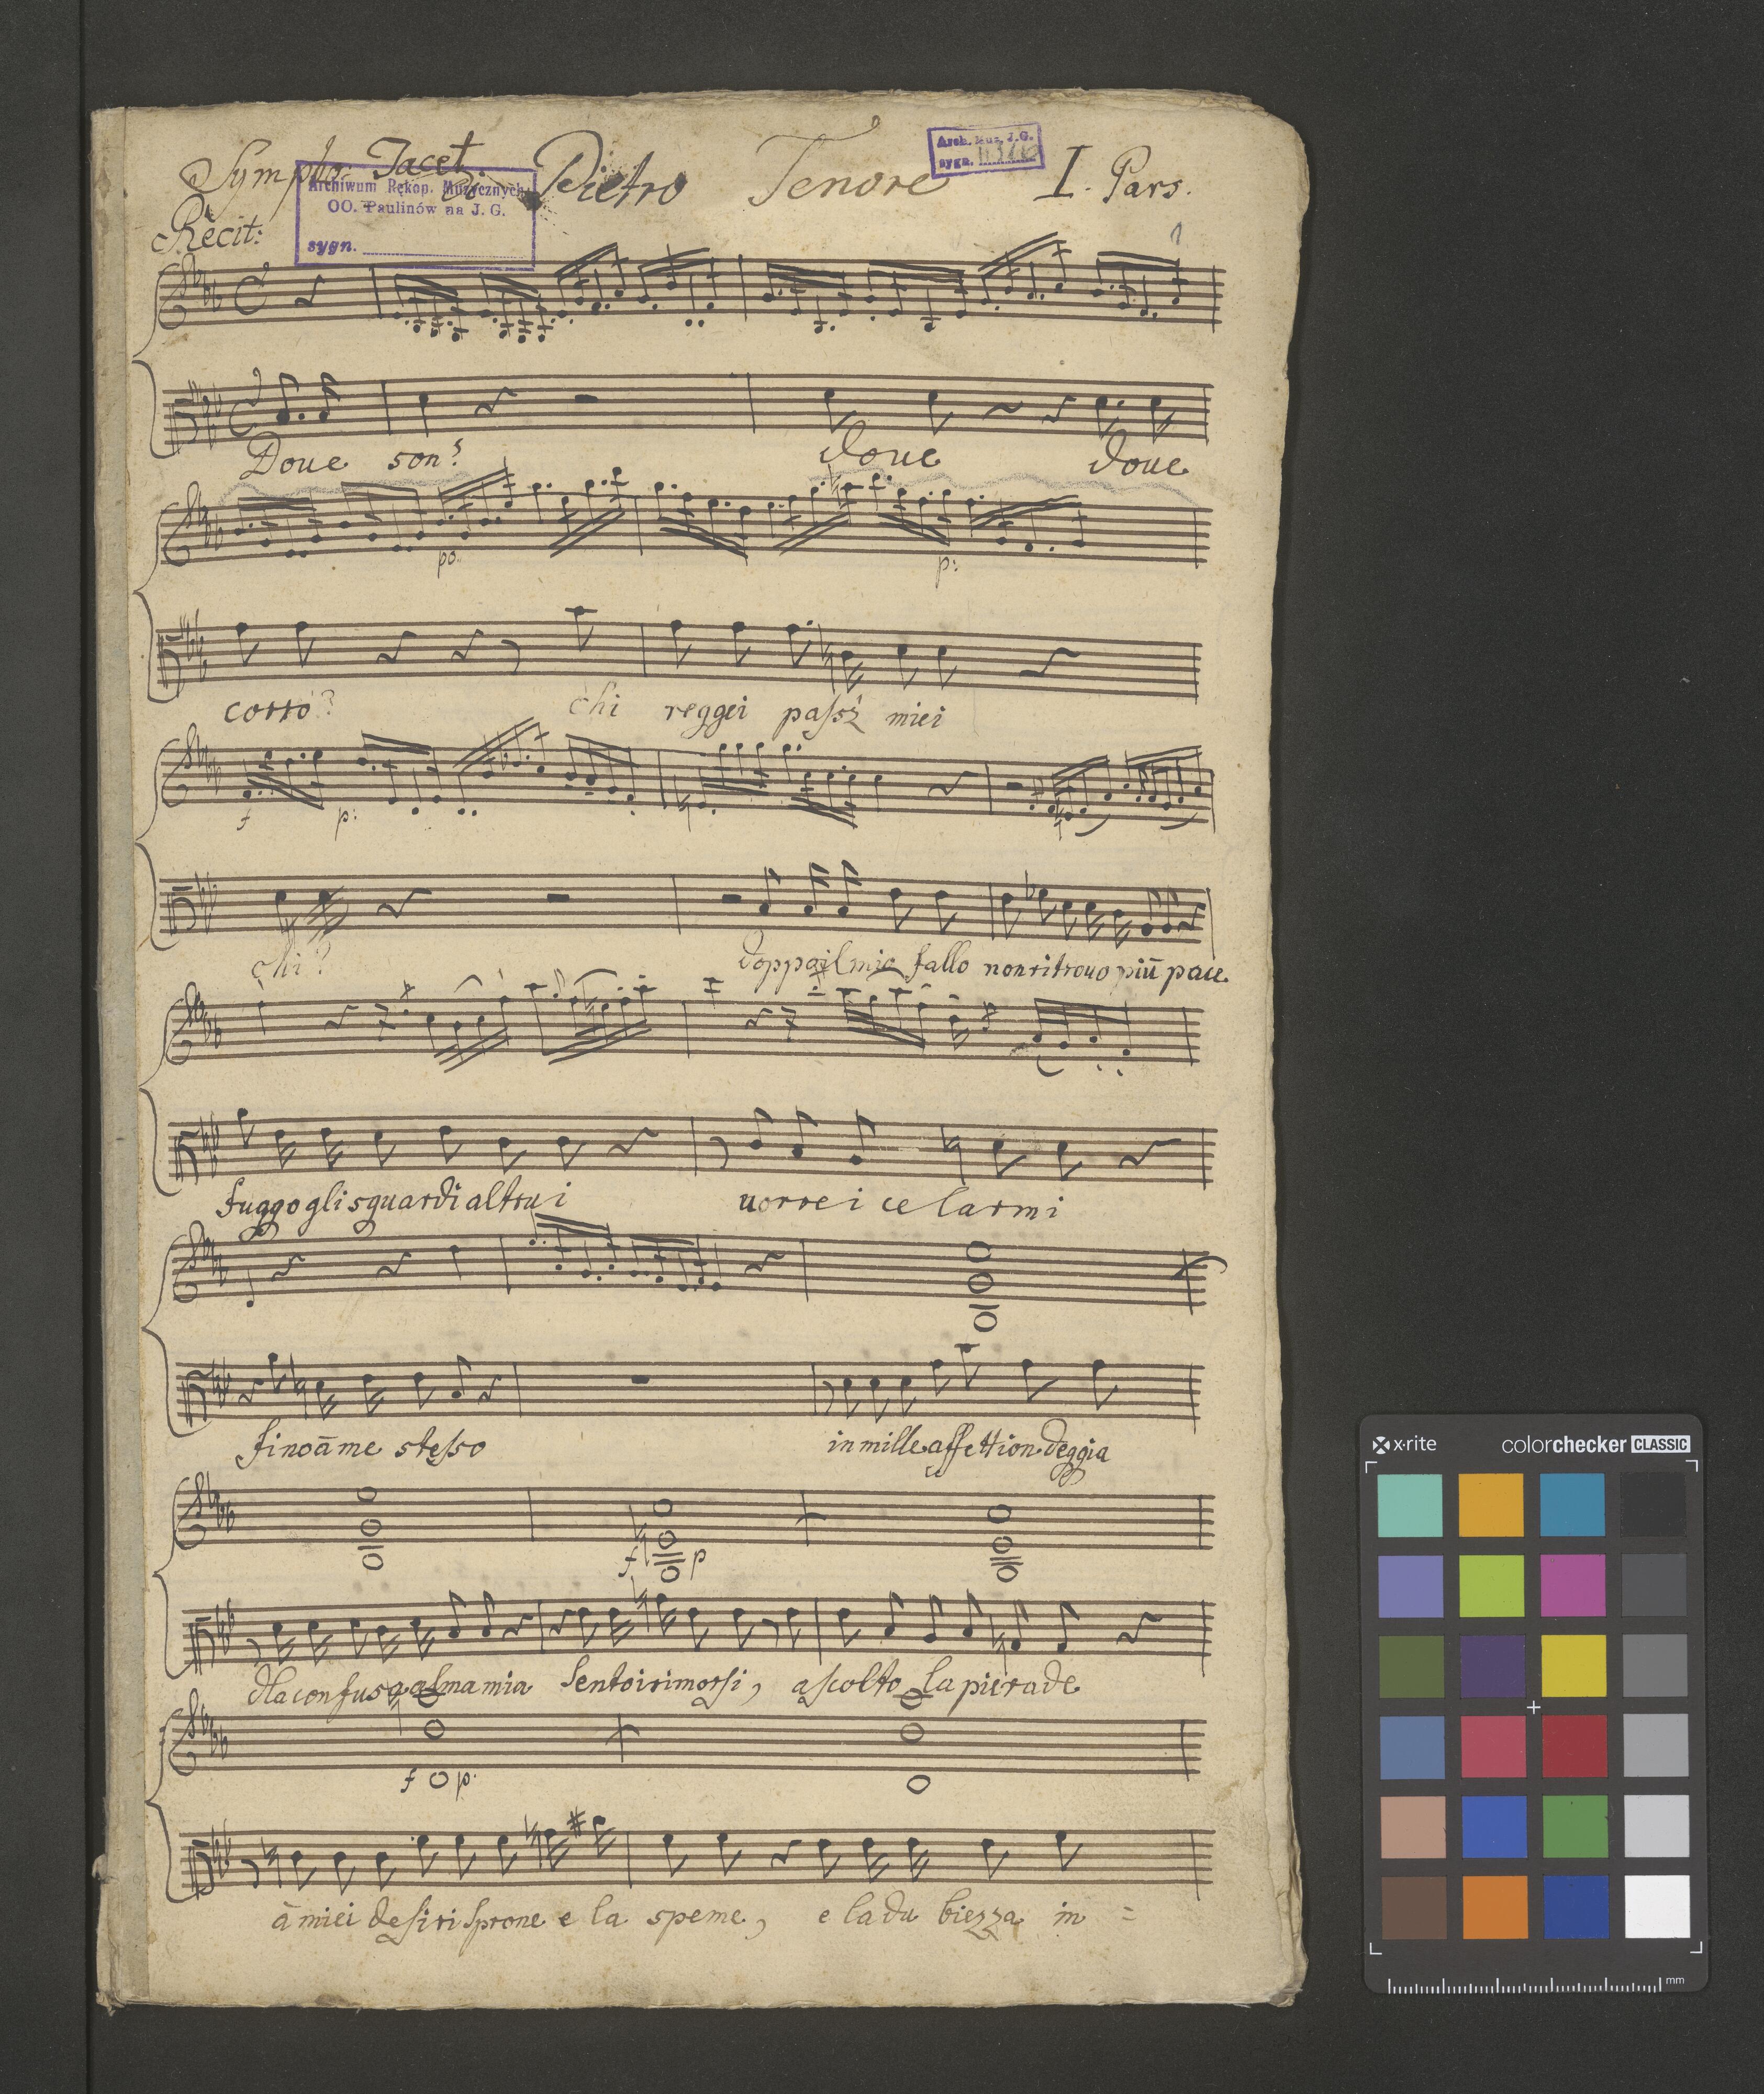 Sympho: Tacet. Pietro Tenore I. Pars.
Arch. Muz. J.G.
sygn.
Archiwum Rękop. Muzycznych
OO. Paulinów na J. G.
sygn.
Recit:
Doue son? doue doue
po. p:
corro? chi reggei passi miei
f p:
chi? doppo il mio fallo non ritrouo più pace
fuggo gli sguardi altrui uorrei celarmi
fino à me stesso in mille affetti ondeggia
f p
la confusa alma mia Sento i rimorsi, ascolto la pietade
f p.
à miei desiri sprone e la speme, e la du biezza in =
x·rite colorchecker CLASSIC
mm